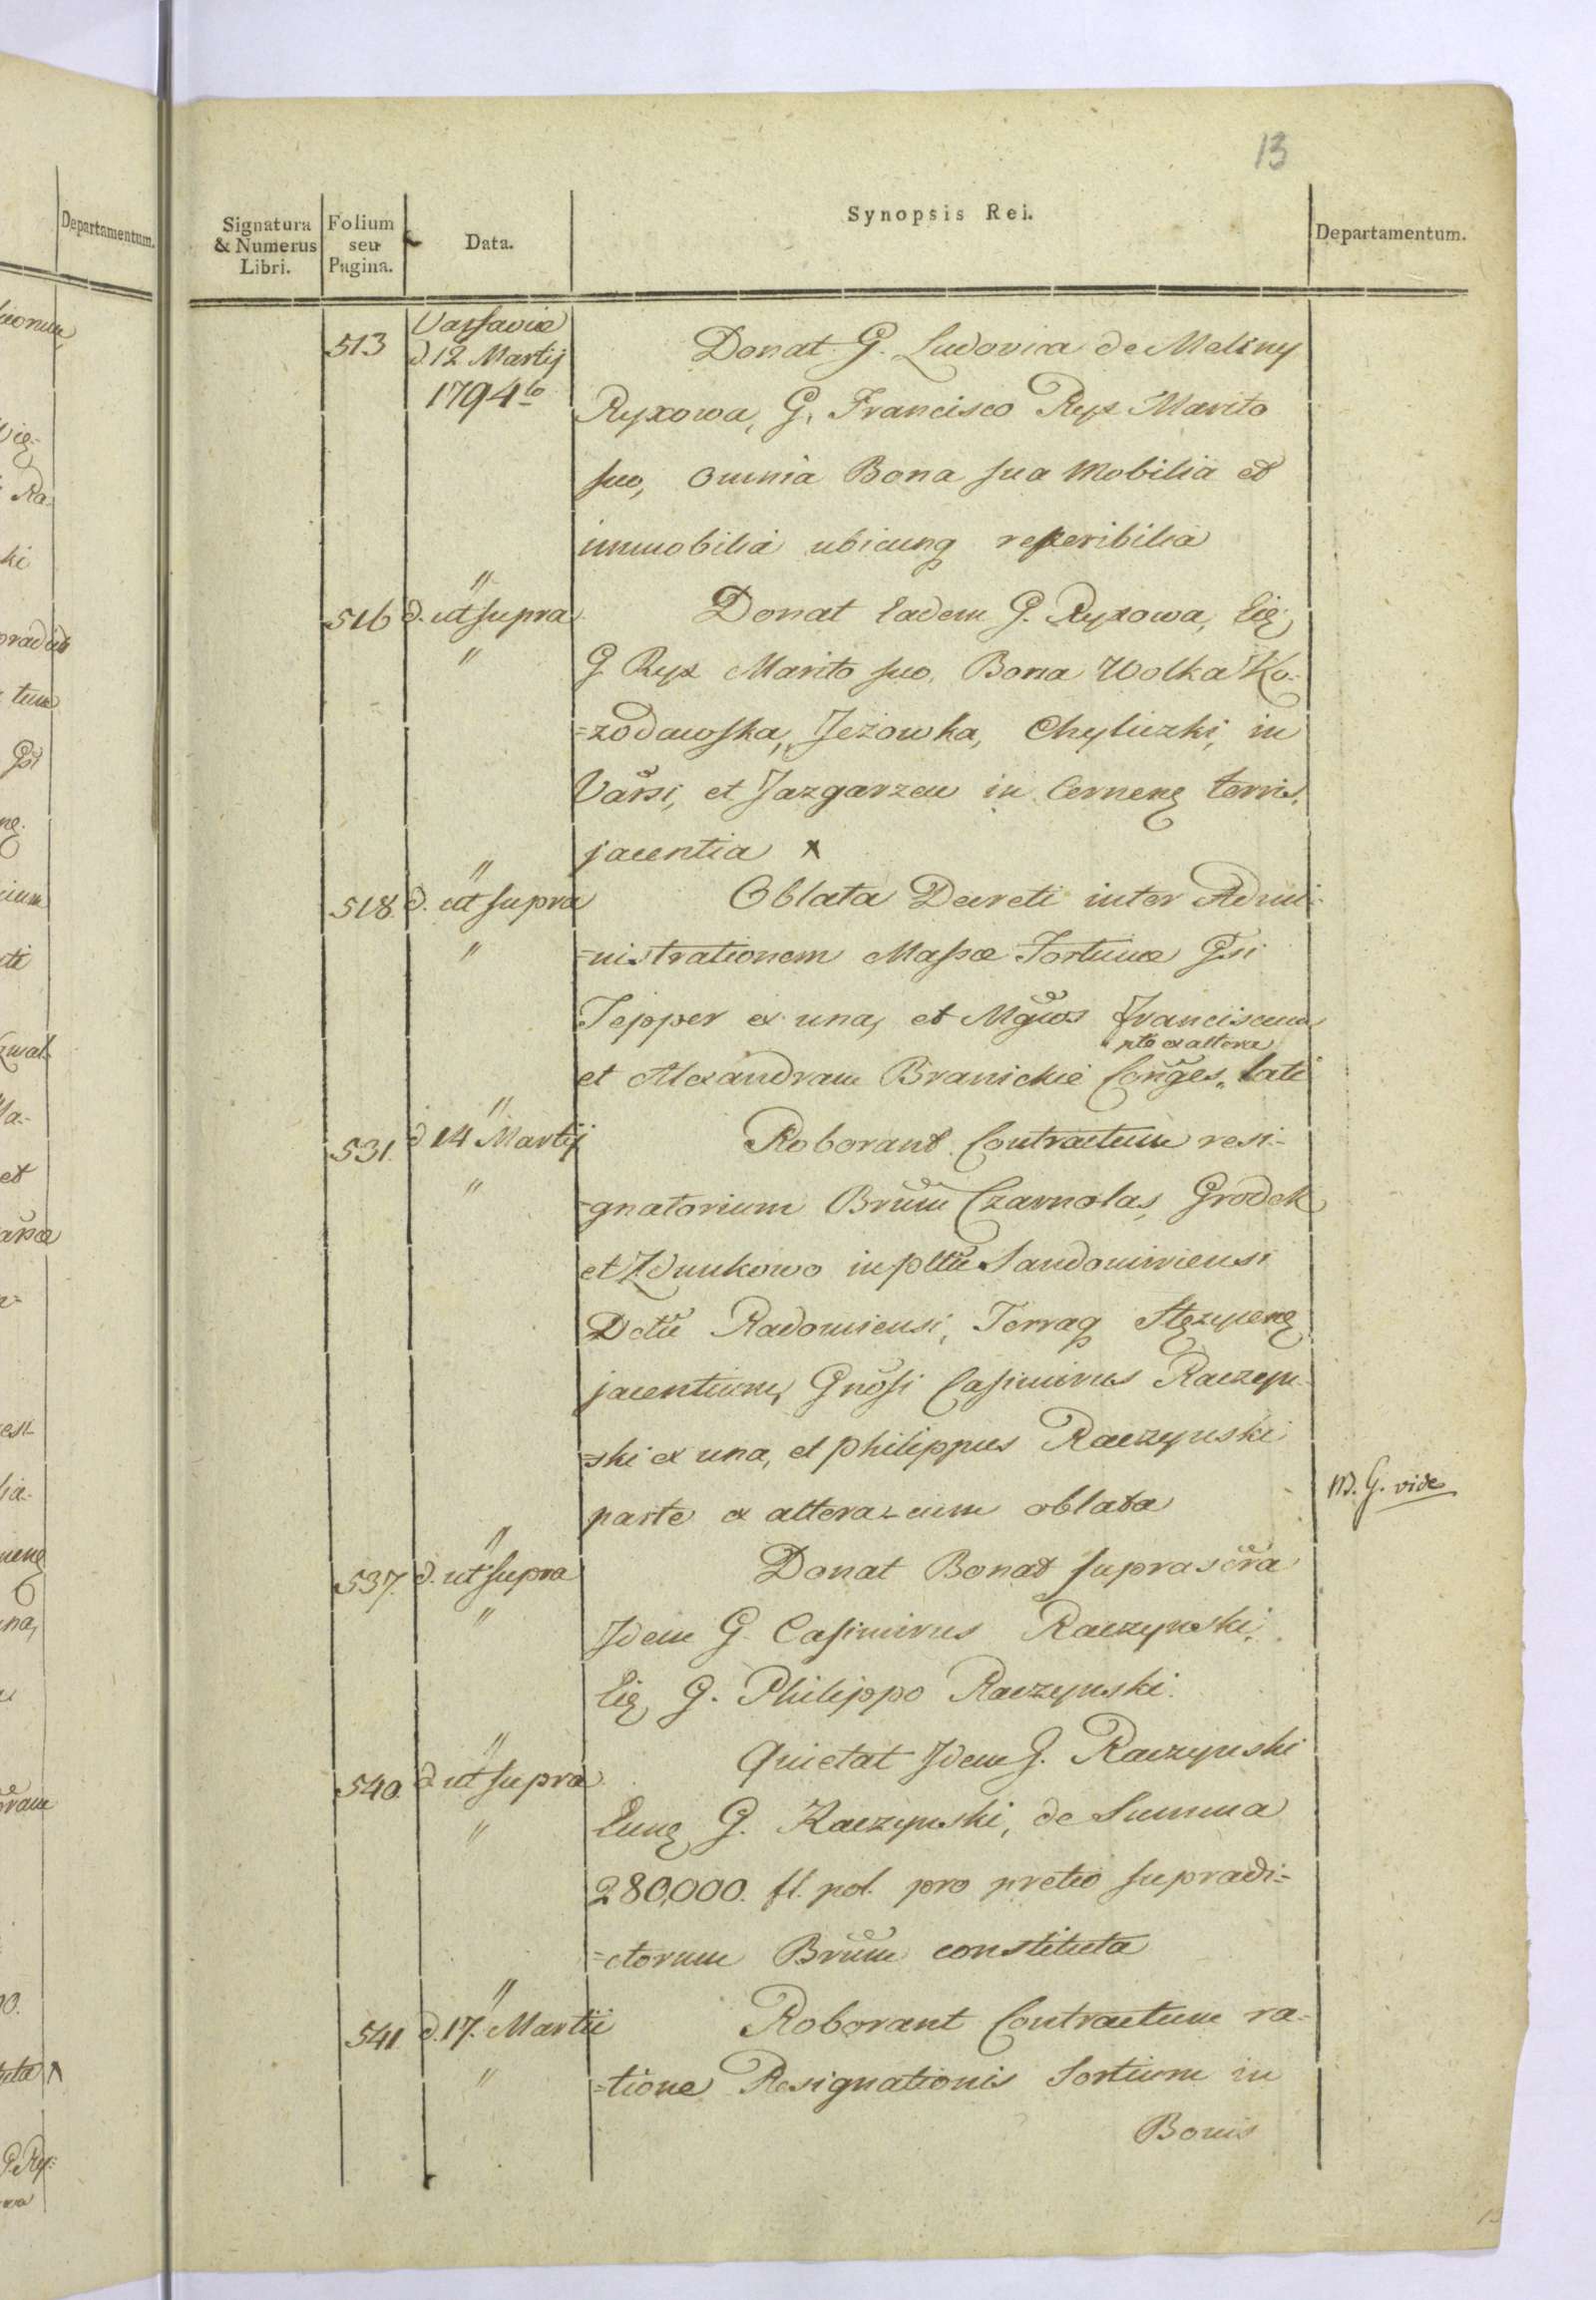 13
Signatura & Numerus Libri.
Folium seu Pagina.
Data.
Synopsis Rei.
Departamentum.
Departamentum.
513
Varsaviæ
d. 12 Martij
1794to
Donat G. Ludovica de Meliny
Ryxowa, G. Francisco Ryx Marito
suo, omnia Bona sua mobilia et
immobilia ubicunq reperibilia
"
516 d. ut supra
"
Donat Eadem G. Ryxowa, Eid
G Ryx Marito suo, Bona Wolka Ko-
=zodawska, Jeżowka, Chyliczki, in
Varsi, et Jazgarzew in Cernen terris,
jacentia x
"
518. d. ut supra
"
Oblata Decreti inter Admi-
=nistrationem Massæ Fortunæ Gsi
Tepper ex una, et Mgcos Franciscum
pte ex altera
et Alexandram Branickie Conges, lati
"
531. d 14 Martij
"
Roborant Contractum resi-
=gnatorium Brum Czarnolas, Grodek
et Zdunkowo in pltu Sandomiriensi
Dctu Radomiensi, Terraq Stężycen
jacentium, Gnosi Casimirus Raczyn-
=ski ex una, et philippus Raczynski
parte ex altera cum oblata
NB. G. vide
"
537. d. ut supra
"
Donat Bona suprascra
Idem G. Casimirus Raczynski,
Eid G. Philippo Raczynski.
"
540. d ut supra
"
Quietat Idem G. Raczynski
Eund G. Raczynski, de Summa
280,000. fl. pol. pro pretio supradi=
=ctorum Brum constituta
"
541 d. 17. Martii
"
Roborant Contractum ra=
=tione Resignationis Sortium in
Bonis